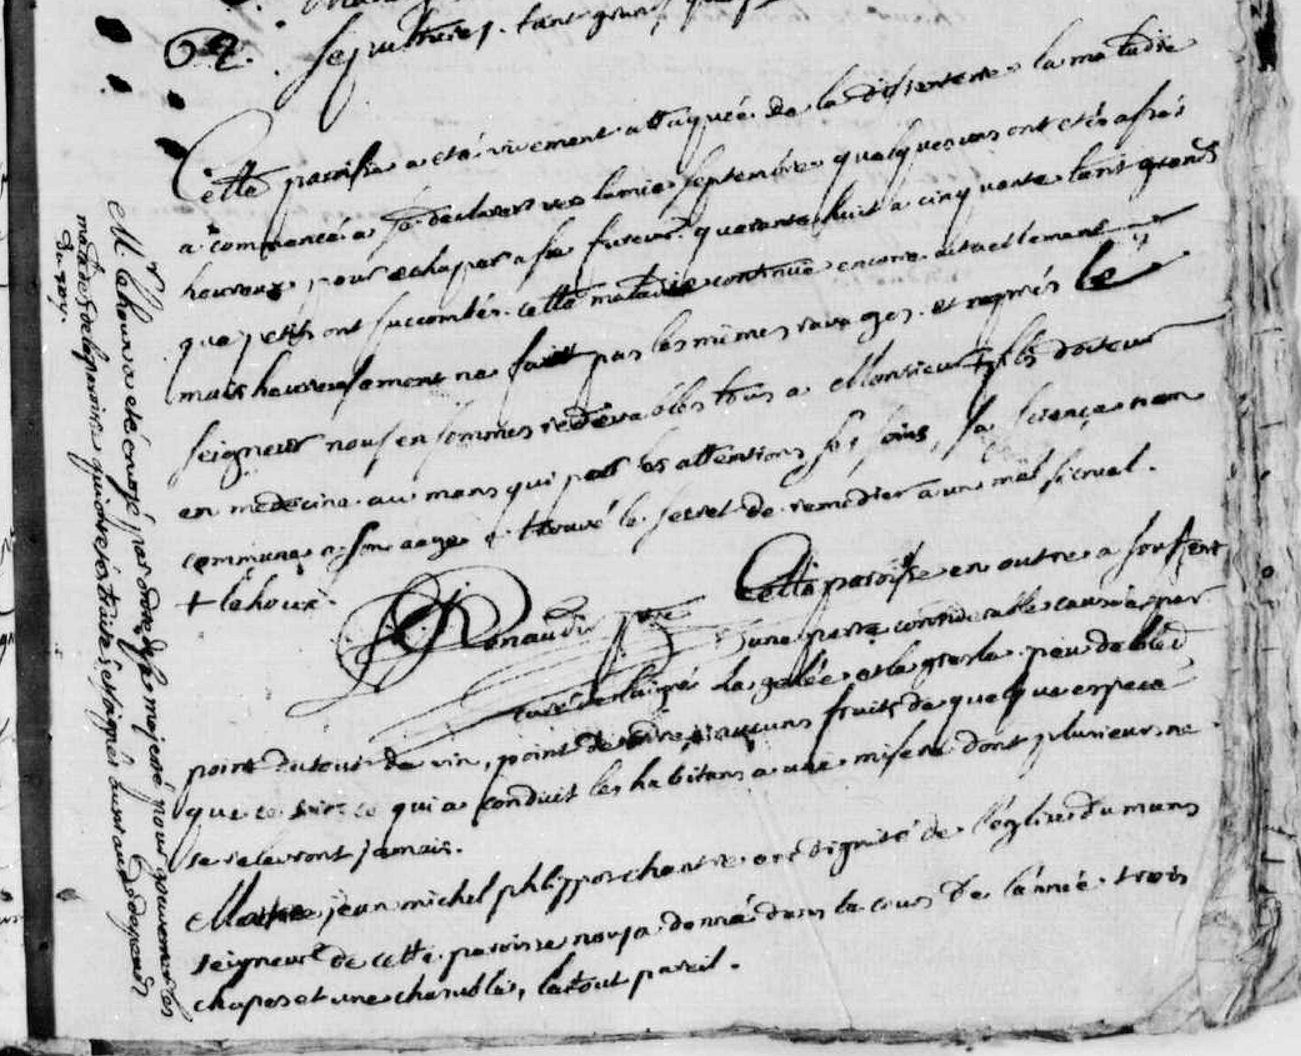 62. sepultures. tant grands que
Cette paroisse a eté vivement attaquée de la dissenterie. la maladie
a commencé a se declarer vers la mie septembre. quelques uns ont etés assés
heureux pour echaper a sa fureur. quarante huit a cinquante tant grands
que petits ont succombés. cette maladie continue encore actuellement
mais heureusement ne fait pas les mêmes ravages. et après le
seigneur nous en sommes redevables tous a Monsieur + docteur
en medecine au mans qui par ses attentions ses soins, sa science non
commune a son aage a trouvé le secret de remedier a un mal si cruel.
+ lehoux.
Renaudin ptre
curé de
Cette paroisse en outre a souffert
une perte considerable causée par
la gelée et la gresle. peu de bled
point du tout de vin, point de cidre, ni aucuns fruits de quelque espece
que ce soit. ce qui a conduit les habitans a une misere dont plusieurs ne
se releveront jamais.
Maitre jean michel philippes chantre en dignité de l'église du mans
seigneur de cette paroisse nous a donné dans le cours de l'année trois
chapes et une chasuble, le tout pareil.
M. lehoux a eté envoyé par ordre de sa majesté pour gouverner les
malades de la paroisse qui ont etés traités et soignés aux depends
du roy.